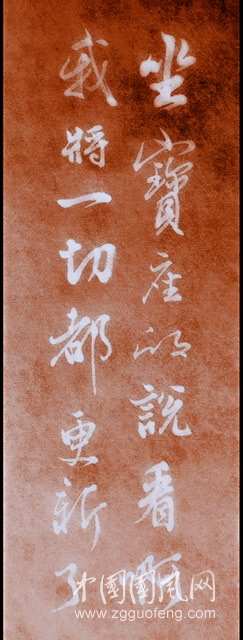 坐寶座的說看哪
我將一切都更新了
中國國風网
www.zgguofeng.com